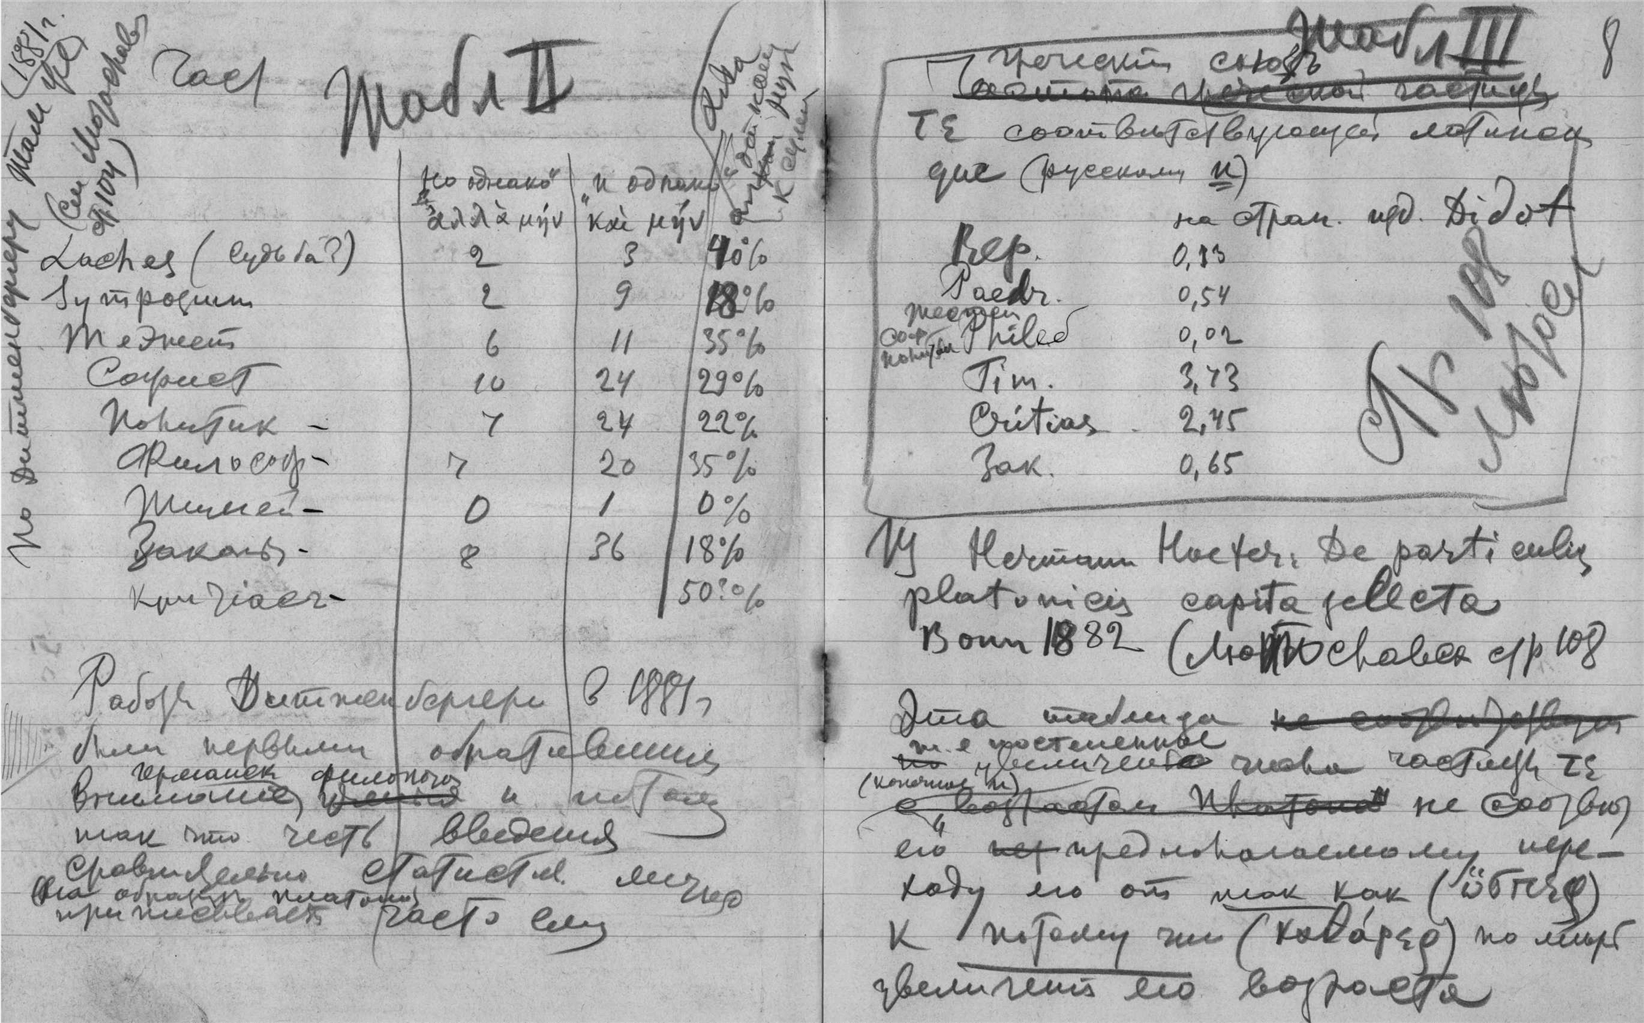 1881 г.
По Диттенбергеру там же
(См Лютославс
стр 104)
Част
Табл II
"но однако" "и однако"
ἀλλὰ μήν καὶ μήν
Laches (Судьба?) 2 3 40%
Symposium 2 9 18%
Теэтет 6 11 35%
Софист 10 24 29%
Политик – 7 24 22%
Философ – 7 20 35%
Тимей – 0 1 0%
Законы – 8 36 18%
Критіасъ – 50?%
Работы Диттенбергера в 1881 г
были первыми обратившими
германск филолого
внимание, и потому
так что честь введения
сравнительно статистич.
на образцы Платона
приписывают часто ему
8
Табл III
греческій союзъ
Частота греческой частицы
τε соответствующей латинск
que (русскому и)
на стран. изд. Didot
Rep. 0,13
Paedr. 0,54
Phileb 0,02
Tim. 3,73
Critias 2,45
Зак. 0,65
Стр 108
Лютосл
Из Hermann Hoefer: De particulis
platonicis capita selecta
Bonn 1882 (Лютославск стр 108
Эта таблица не соответствует
т. е постепенное
увеличение числа частицы τε
(конечное и)
с возрастом Платона не соотв
его предполагаемому пере-
ходу его от так как (ὥσπερ)
к потому что (καθάπερ) по мере
увеличения его возраста